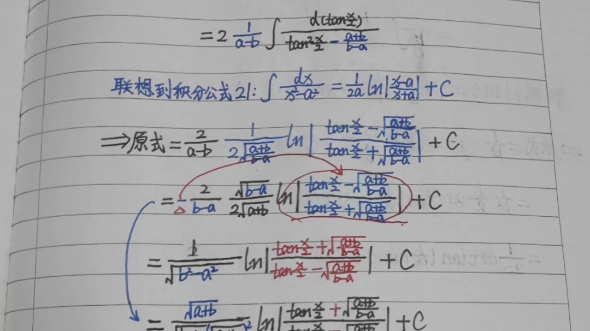 = 2 1/(a-b) ∫ d(tan x/2) / (tan² x/2 - (a+b)/(b-a))
联想到积分公式21: ∫ dx/(x²-a²) = 1/(2a) ln|(x-a)/(x+a)| + C
⇒ 原式 = 2/(a-b) 1/(2√((a+b)/(b-a))) ln|(tan x/2 - √((a+b)/(b-a)))/(tan x/2 + √((a+b)/(b-a)))| + C
= - 2/(b-a) √(b-a)/(2√(a+b)) ln|(tan x/2 - √((a+b)/(b-a)))/(tan x/2 + √((a+b)/(b-a)))| + C
= 1/√(b²-a²) ln|(tan x/2 + √((a+b)/(b-a)))/(tan x/2 - √((a+b)/(b-a)))| + C
= √(a+b) ln|(tan x/2 + √((a+b)/(b-a)))/(tan x/2 - | + C